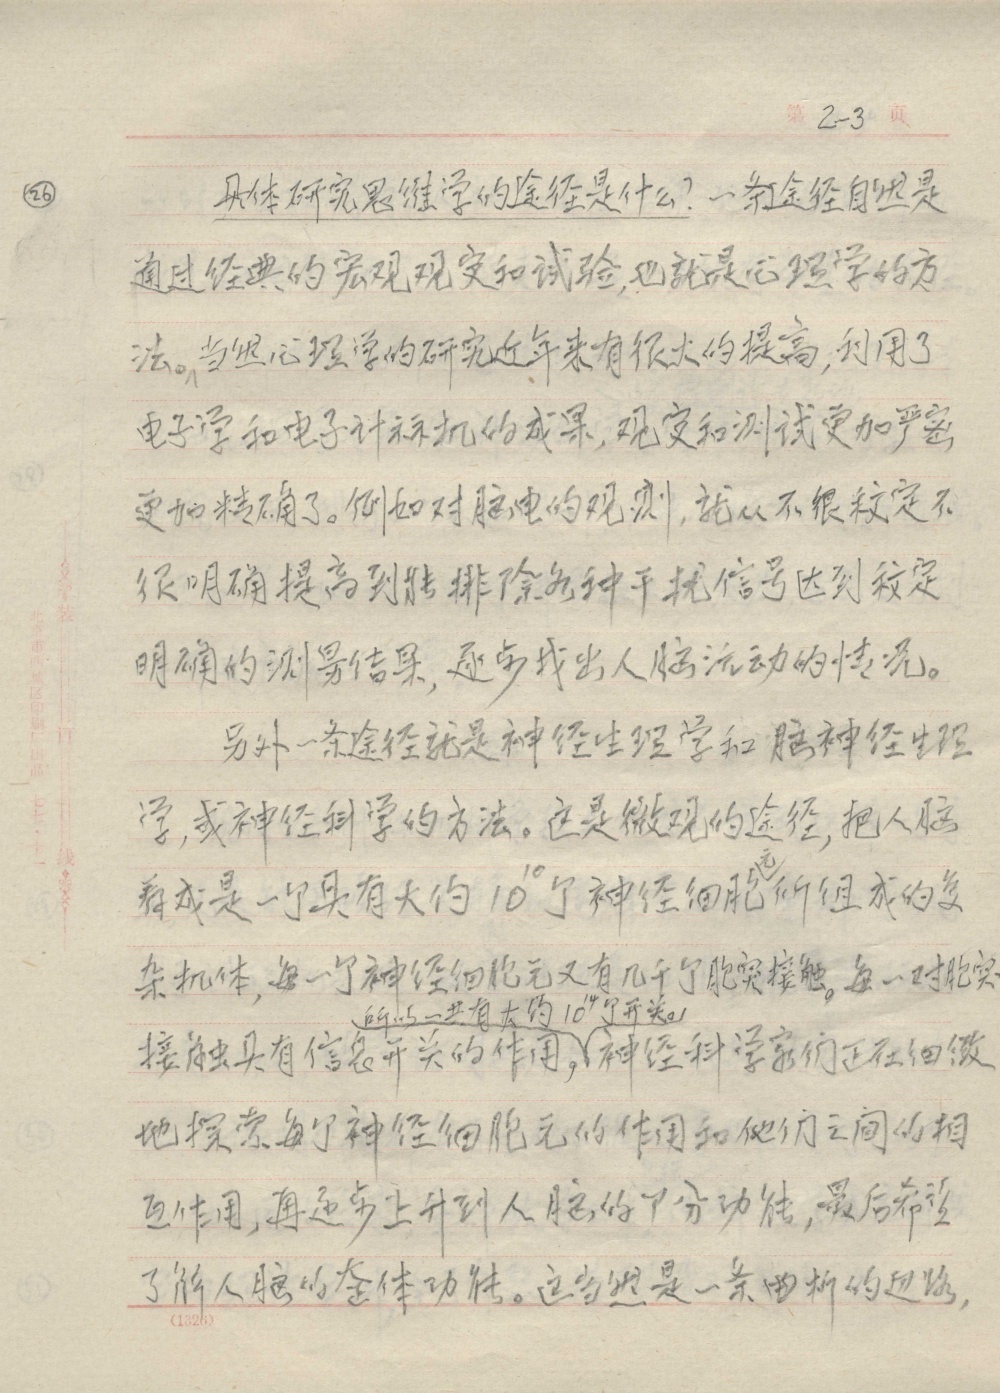 第 2-3 页
㉖
具体研究思维学的途径是什么?一条途径自然是
通过经典的宏观观察和试验,也就是心理学的方
法。当然心理学的研究近年来有很大的提高,利用了
电子学和电子计祘机的成果,观察和测试更加严密
更加精确了。例如对脑电的观测,就从不很稳定不
很明确提高到能排除各种干扰信号达到稳定
明确的测量结果,逐步找出人脑活动的情况。
另外一条途径就是神经生理学和脑神经生理
学,或神经科学的方法。这是微观的途径,把人脑
看成是一个具有大约10¹⁰个神经细胞元所组成的复
杂机体,每一个神经细胞元又有几千个胞突接触。每一对胞突
所以一共有大约10¹⁴个开关。
接触具有信息开关的作用,神经科学家们正在细微
地探索每个神经细胞元的作用和他们之间的相
互作用,再逐步上升到人脑的部分功能,最后希望
了解人脑的整体功能。这当然是一条曲折的道路,
(1326)